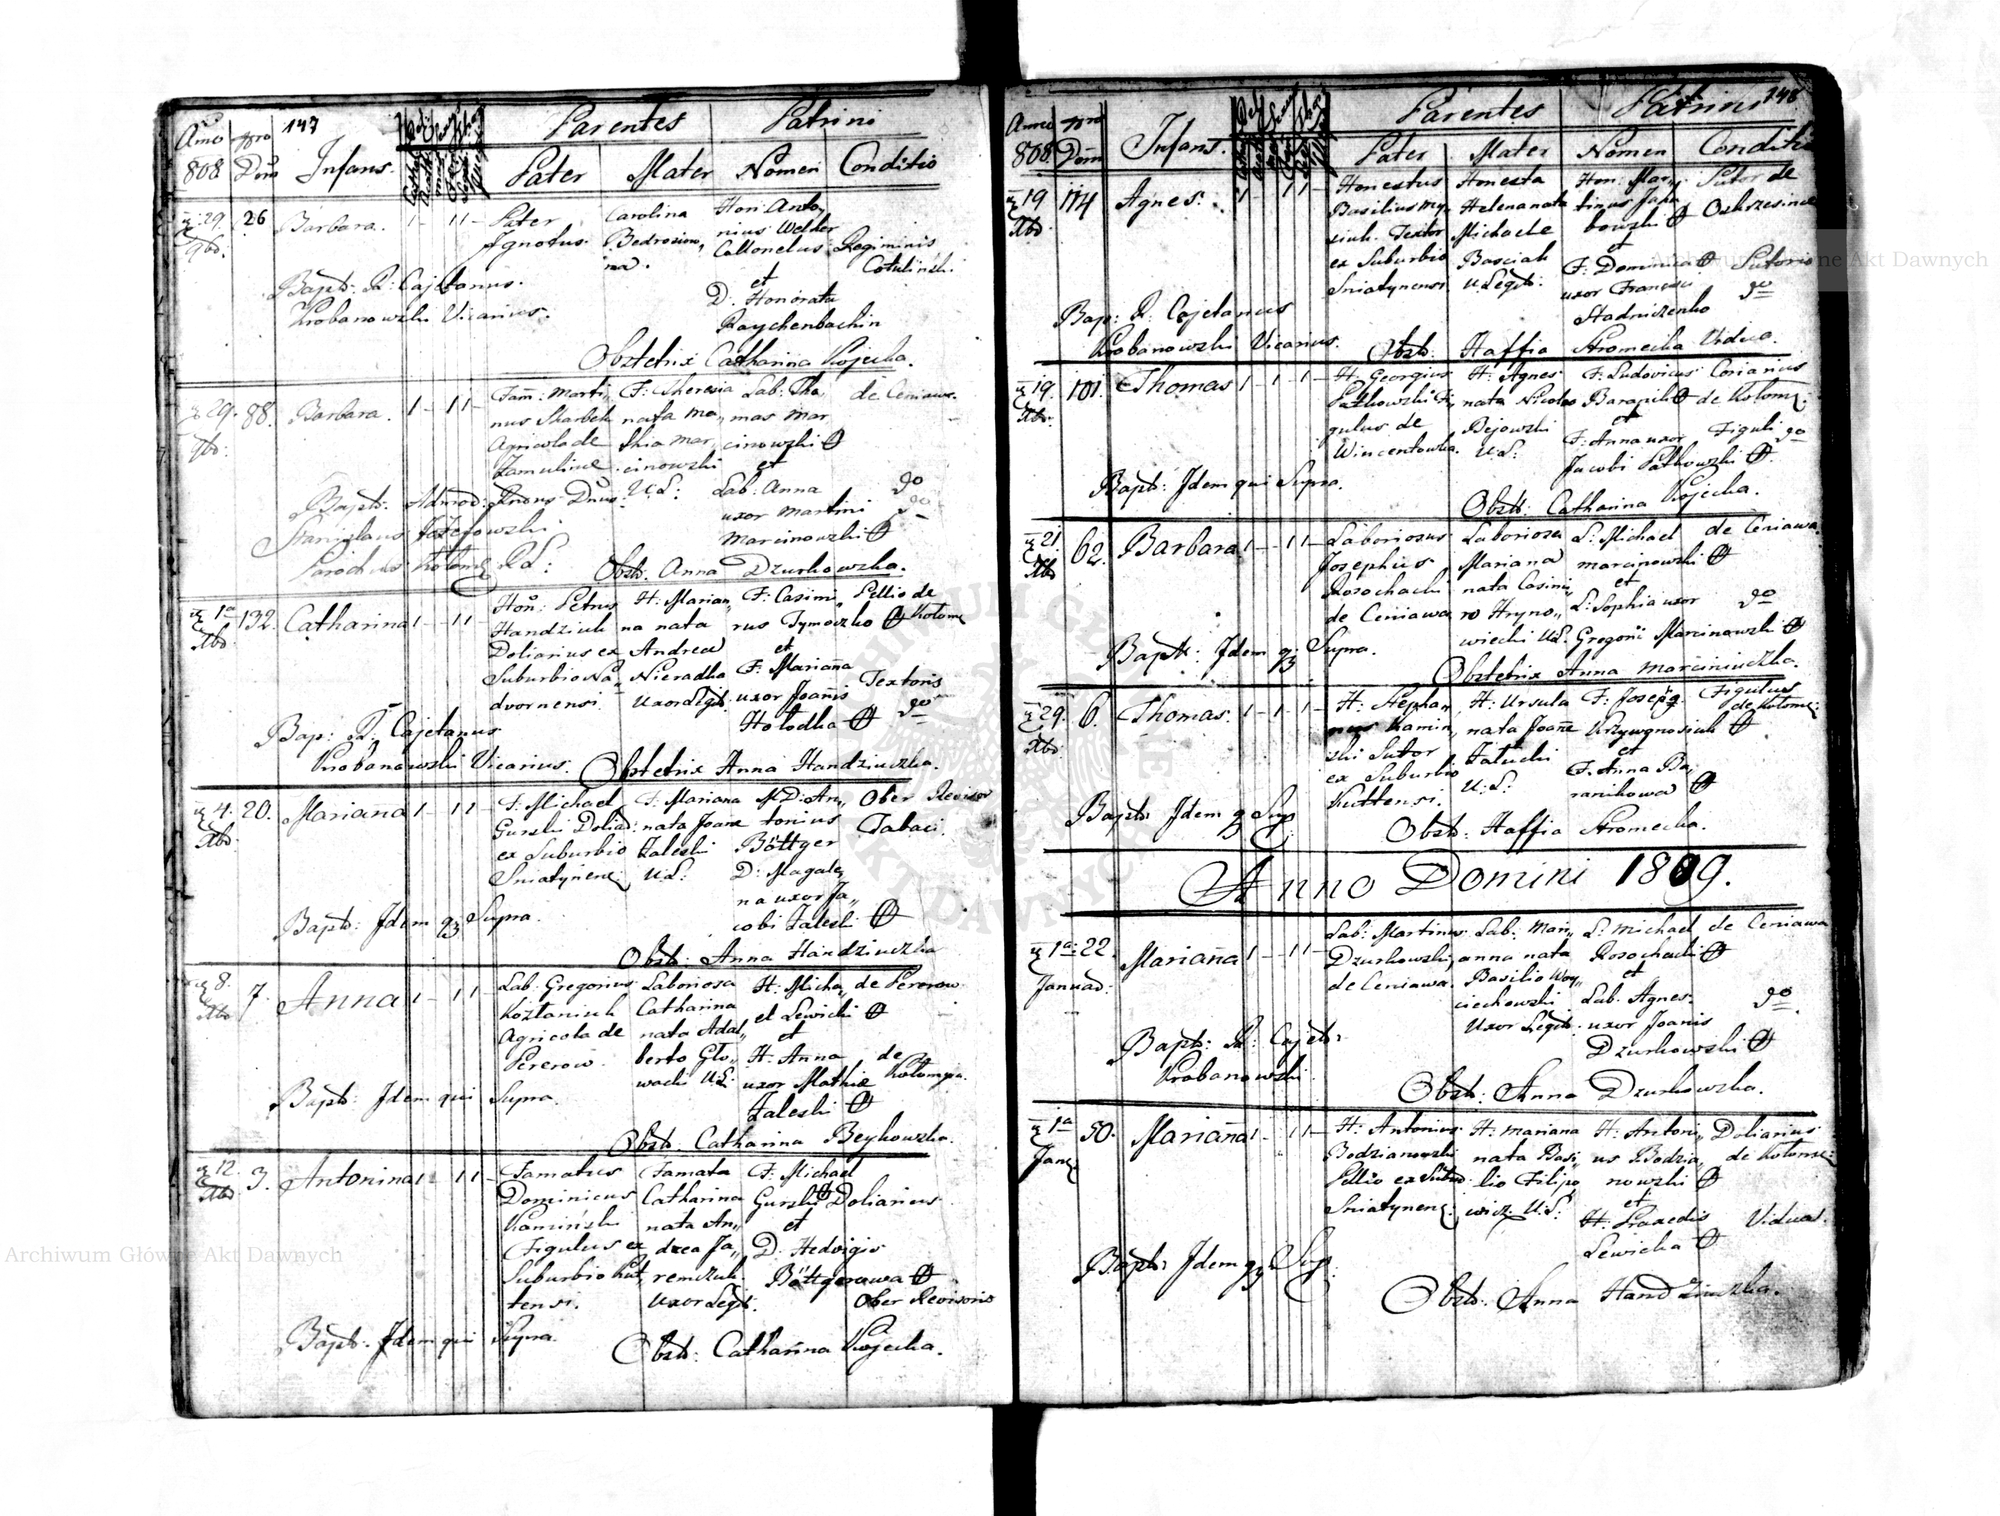 147
Anno 808
Nro Dom
Infans.
Parentes
Patrini
Pater
Mater
Nomen
Conditio
29. 9bris
26
Barbara. 1 - 11 -
Pater
Ignotus
Carolina
Bedrosino,,
wna.
Hon: Anto,,
nius Welker
Collonelus Regiminis
Cotuliński.
et
D. Honorata
Raychenbachin
Bapt: R: Cajetanus
Krobanowski Vicarius.
Obstetrix Catharina Kojecka.
29. 9bris
88.
Barbara. 1 - 11 -
Fam: Marti,,
nus Skarbek
Agricola de
Zamulince
F: Theresia
nata Ma,,
thia Mar,,
cinowski
U: L:
Lab. Tho,,
mas Mar
cinowski
et
Lab. Anna
uxor Martini
Marcinowski
de Ceniawa.
do
Bapt: Admod: Rndus Dnus
Stanislaus Józefowski
Parochus Kolom: R.L:
Obst: Anna Dzurkowska.
1a Xbris
132.
Catharina 1 - 11 -
Hon: Petrus
Handziuk
Doliarius ex
Suburbio Na,,
dvornensi.
H: Marian,,
na nata
Andrea
Nieradka
Uxor Legit:
F: Casimi,,
rus Tymoczko
et
F: Marianna
uxor Joannis
Holodka
Pellio de
Kolom:
Textoris
do
Bap: R. Cajetanus
Krobanowski Vicarius.
Obstetrix Anna Handziuczka.
4. Xbris
20.
Marianna 1 - 11 -
F: Michael
Gurski Doliar:
ex Suburbio
Sniatynen:
F: Mariana
nata Joane
Zaleski
U: L:
M: D: An,,
tonius
Böttger
D: Magale,,
na uxor Ja,,
cobi Zaleski
Ober Revisor
Tabaci.
Bapt: Idem q3 Supra.
Obst: Anna Handziuczka
8. Xbris
7.
Anna 1 - 11 -
Lab: Gregorius
Kozłaniuk
Agricola de
Pererow.
Laboriosa
Catharina
nata Adal,,
berto Gło,,
wacki U: L:
H: Micha,,
el Lewicki
et
H: Anna
uxor Mathiæ
Zaleski
de Pererow.
de
Kolomya.
Bapt: Idem qui Supra.
Obst. Catharina Beykowska.
12. Xbris
3.
Antonina 1 - 11 -
Famatus
Dominicus
Kamiński
Figulus ex
Suburbio Kut,,
tensi.
Famata
Catharina
nata An,,
drea Ja,,
remczuk.
Uxor Legit:
F: Michael
Gurski Doliarius
et
D. Hedvigis
Böttgerowa
Ober Revisoris
Bapt: Idem qui Supra.
Obst: Catharina Kojecka.
148
Anno 808.
Nro Dom
Infans.
Parentes
Patrini
Pater
Mater
Nomen
Conditio
19 Xbris
114
Agnes. 1 - 11 -
Honestus
Basilius My,,
ziuk. Textor
ex Suburbio
Sniatynensi.
Honesta
Helena nata
Michaele
Basciak
U: Legit:
Hon: Mar,,
tinus Jaku
bowski
et
F: Dominica
uxor Francisci
Stadniczenko
Sutor de
Oskrzesince
Sutoris
do
Bap: R: Cajetanus
Krobanowski Vicarius.
Obst: Haffia Stromecka Vidua.
19. Xbris
101.
Thomas 1 - 1 - 1 -
H: Georgius
Patkowski Fi,,
gulus de
Wincentowka.
H: Agnes
nata Nicolao
Bejowski
U: L:
F: Ludovicus
Barapik
et
F: Anna uxor
Jacobi Patkowski
Coriarius
de Kolom:
Figuli do
Bapt: Idem qui Supra.
Obst: Catharina Kojecka.
21. Xbris
62.
Barbara 1 - 11 -
Laboriosus
Josephus
Rosochacki
de Ceniawa
Laboriosa
Mariana
nata Casimi,,
ro Hryno,,
wiecki U: L:
L: Michael
Marcinowski
et
L: Sophia uxor
Gregorii Marcinowski
de Ceniawa.
do
Bapt: Idem q3 Supra.
Obstetrix Anna Marciniuczka.
29. Xbris
6.
Thomas. 1 - 1 - 1 -
H: Stepha,,
nus Kamin,,
ski Sutor
ex Suburbio
Kuttensi.
H: Ursula
nata Joane
Załucki
U: L:
F: Joseph
Krzywgnosiuk
et
F: Anna Ba,,
ranikowa
Figulus
de Kolom:
Bapt: Idem q3 Sup:
Obst: Haffia Stromecka.
Anno Domini 1809.
1a Januar:
22.
Marianna 1 - 11 -
Lab: Martinus
Dzurkowski
de Ceniawa.
Lab: Mari,,
anna nata
Basilio Woy,,
ciechowski
Uxor Legit:
L: Michael
Rosochacki
et
Lab. Agnes.
uxor Joanis
Dzurkowski
de Ceniawa
do
Bapt: R: Cajet:
Krobanowski
Obst: Anna Dzurkowska.
1a Jan:
50.
Marianna 1 - 11 -
H: Antonius
Bodzianowski
Pellio ex Subur
Sniatynen:
H: Mariana
nata Basi,,
lio Filipo
wicz. U: L:
H: Antoni,,
us Bodzia,,
nowski
et
H: Praxedis
Lewicka
Doliarius
de Kolom:
Vidua.
Bapt: Idem q3 Sup:
Obst: Anna Handziuczka.
Archiwum Główne Akt Dawnych